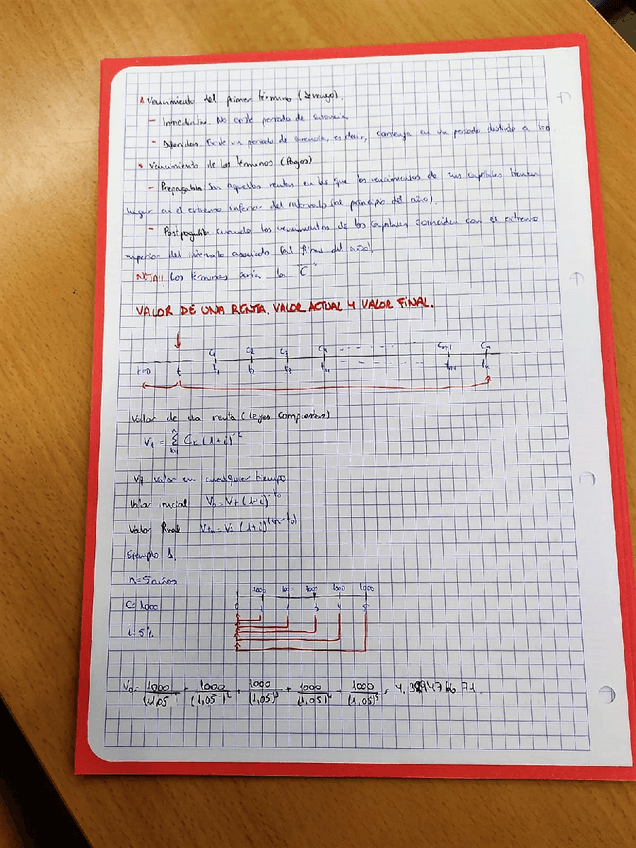 Vencimiento del primer término (devengo).
- Inmediatas. No existe periodo de carencia
- Diferidas. Existe un periodo de carencia, es decir, comienza en un periodo distinto a t=0
Vencimiento de los términos (Pagos)
- Prepagable Son aquellas rentas en las que los vencimientos de sus capitales tienen
lugar en el extremo inferior del intervalo (al principio del año).
- Postpagable cuando los vencimientos de los capitales coinciden con el extremo
superior del intervalo asociado (al final del año).
Los términos sería la "C"
VALOR DE UNA RENTA. VALOR ACTUAL Y VALOR FINAL.
C1 C2 C3 Cn-1 Cn
t=0 t t1 t2 t3 tn-1 tn
Valor de una renta (leyes compuestas)
Valor en cualquier tiempo
Valor inicial
Valor final
Ejemplo 1.
n=5 años
1000 1000 1000 1000 1000
C=1000
0 1 2 3 4 5
i=5%
V0 = 1000/(1,05) + 1000/(1,05)² + 1000/(1,05)³ + 1000/(1,05)⁴ + 1000/(1,05)⁵